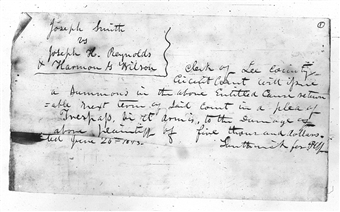 ①
Joseph Smith
vs
Joseph H. Reynolds
& Harmon G Wilson
Clerk of Lee County
Circuit Court will Issue
a Summons in the above Entitled Cause return
able next term of Said Court in a plea of
Trespass, vi et armis, to the Damage of
above plaintiff of five thousand dollars.
June 26th 1843.
Southwick for Plff